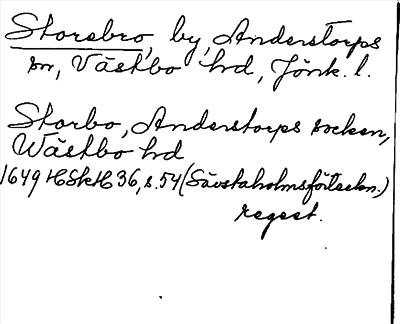 Storebro, by, Anderstorps
sn, Västbo hd, Jönk. l.
Storbo, Anderstorps socken,
Wästbo hd
1649 HSkH 36, s. 54 (Sävstaholmsförteckn.)
regest.